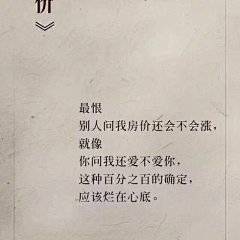 价》
最恨
别人问我房价还会不会涨，
就像
你问我还爱不爱你，
这种百分之百的确定，
应该烂在心底。